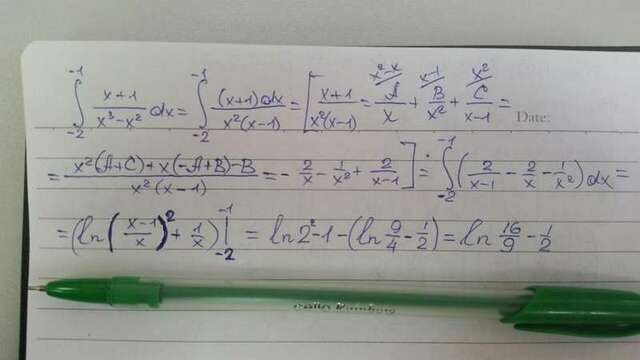 ∫_{-2}^{-1} (x+1)/(x³-x²) dx = ∫_{-2}^{-1} (x+1)dx/(x²(x-1)) = [ (x+1)/(x²(x-1)) = A/x ^{x²-x/} + B/x² ^{x-1/} + C/(x-1) ^{x²/} = Date:
= (x²(A+C)+x(-A+B)-B)/(x²(x-1)) = -2/x - 1/x² + 2/(x-1) ] = ∫_{-2}^{-1} (2/(x-1) - 2/x - 1/x²) dx =
= (ln((x-1)/x)² + 1/x) |_{-2}^{-1} = ln2² - 1 - (ln 9/4 - 1/2) = ln 16/9 - 1/2